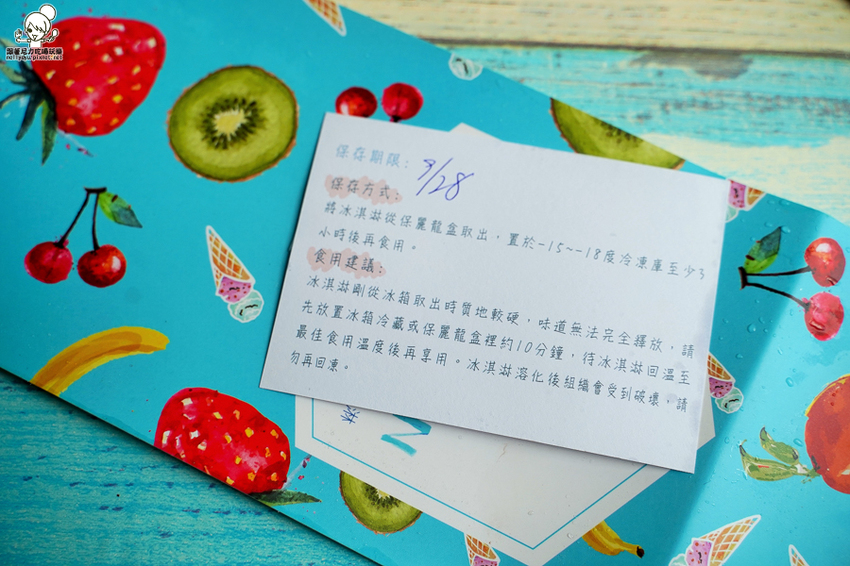 跟著尼力吃喝玩樂
nellydyu.pixnet.net
保存期限：9/28
保存方式：
將冰淇淋從保麗龍盒取出，置於-15~-18度冷凍庫至少3
小時後再食用。
食用建議：
冰淇淋剛從冰箱取出時質地較硬，味道無法完全釋放，請
先放置冰箱冷藏或保麗龍盒裡約10分鐘，待冰淇淋回溫至
最佳食用溫度後再享用。冰淇淋溶化後組織會受到破壞，請
勿再回凍。